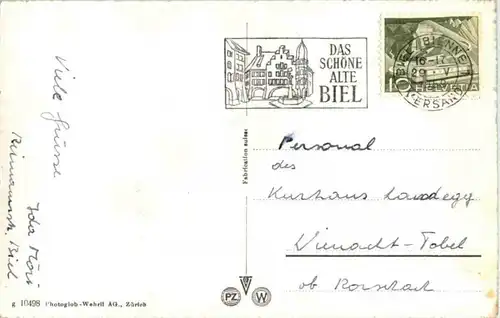 DAS
SCHÖNE
ALTE
BIEL
BIEL (BIENNE)
16-17
29. V.
VERSAND
10
HELVETIA
Viele Grüsse
Ida Möri
Biel
Fabrication suisse
Personal
des
Kurhaus Landegg
Wienacht-Tobel
ob Rorschach
PZ
W
g 10498 Photoglob-Wehrli AG., Zürich